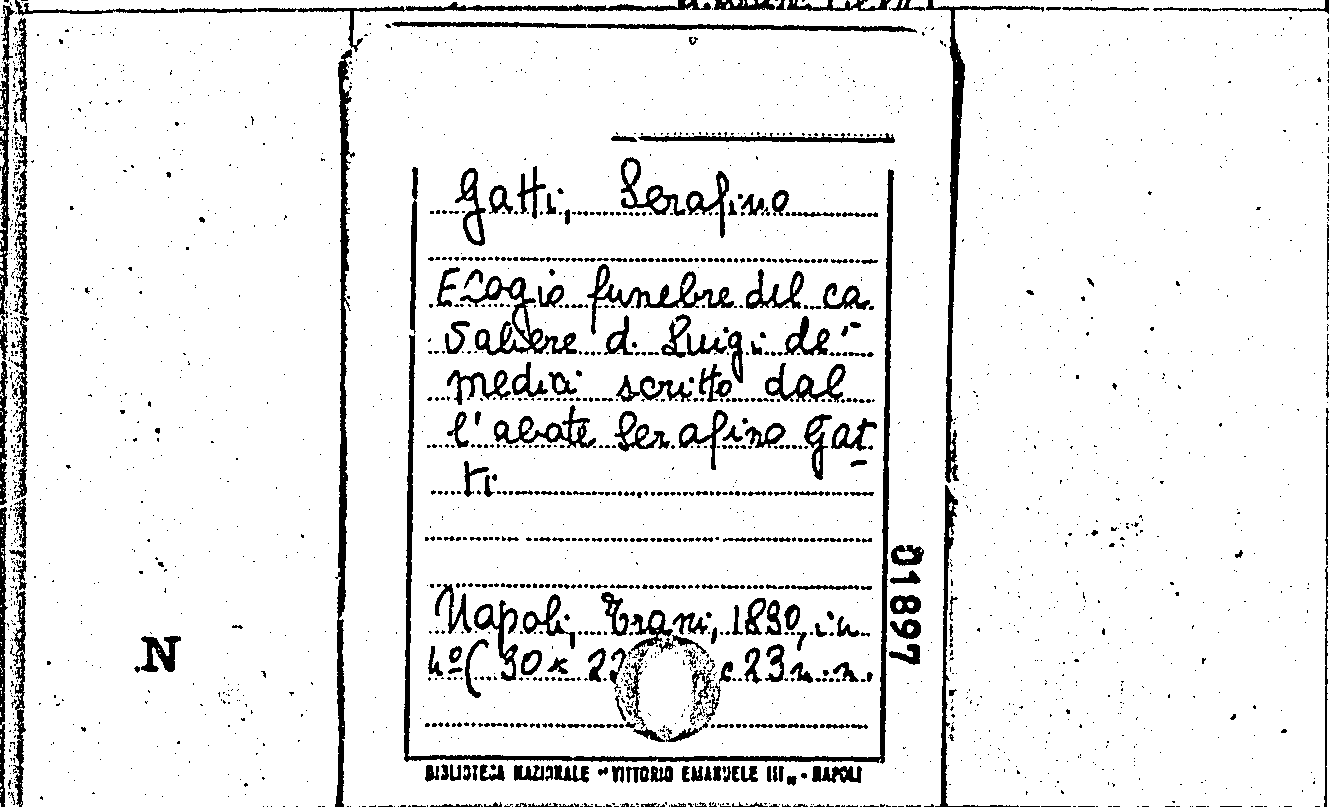 Gatti, Serafino
Elogio funebre del ca
valiere d. Luigi de'
medici scritto dal
l'abate Serafino Gat
ti
Napoli, Trani, 1830, in
4º (30 x 22 c 23 n. n.
01897
N
BIBLIOTECA NAZIONALE "VITTORIO EMANUELE III„ - NAPOLI